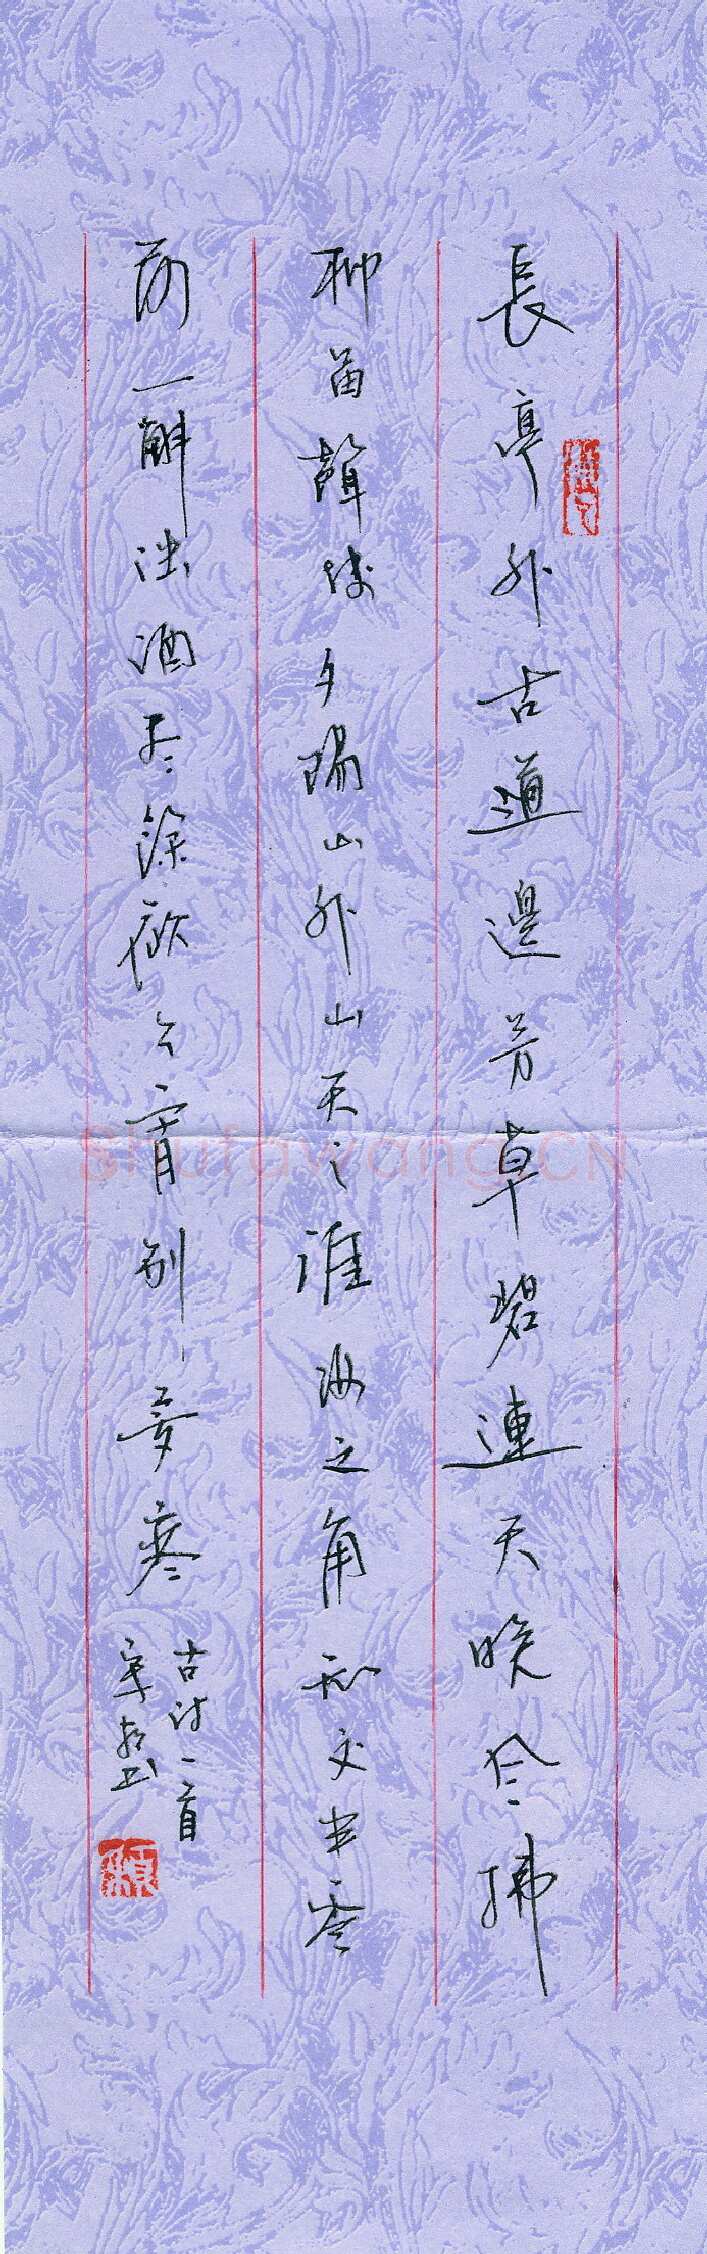 長亭外古道邊芳草碧連天晚風拂
柳笛聲殘夕陽山外山天之涯海之角知交半零
落一斛浊酒尽餘歡今宵别夢寒
古诗一首
Shufawang.CN